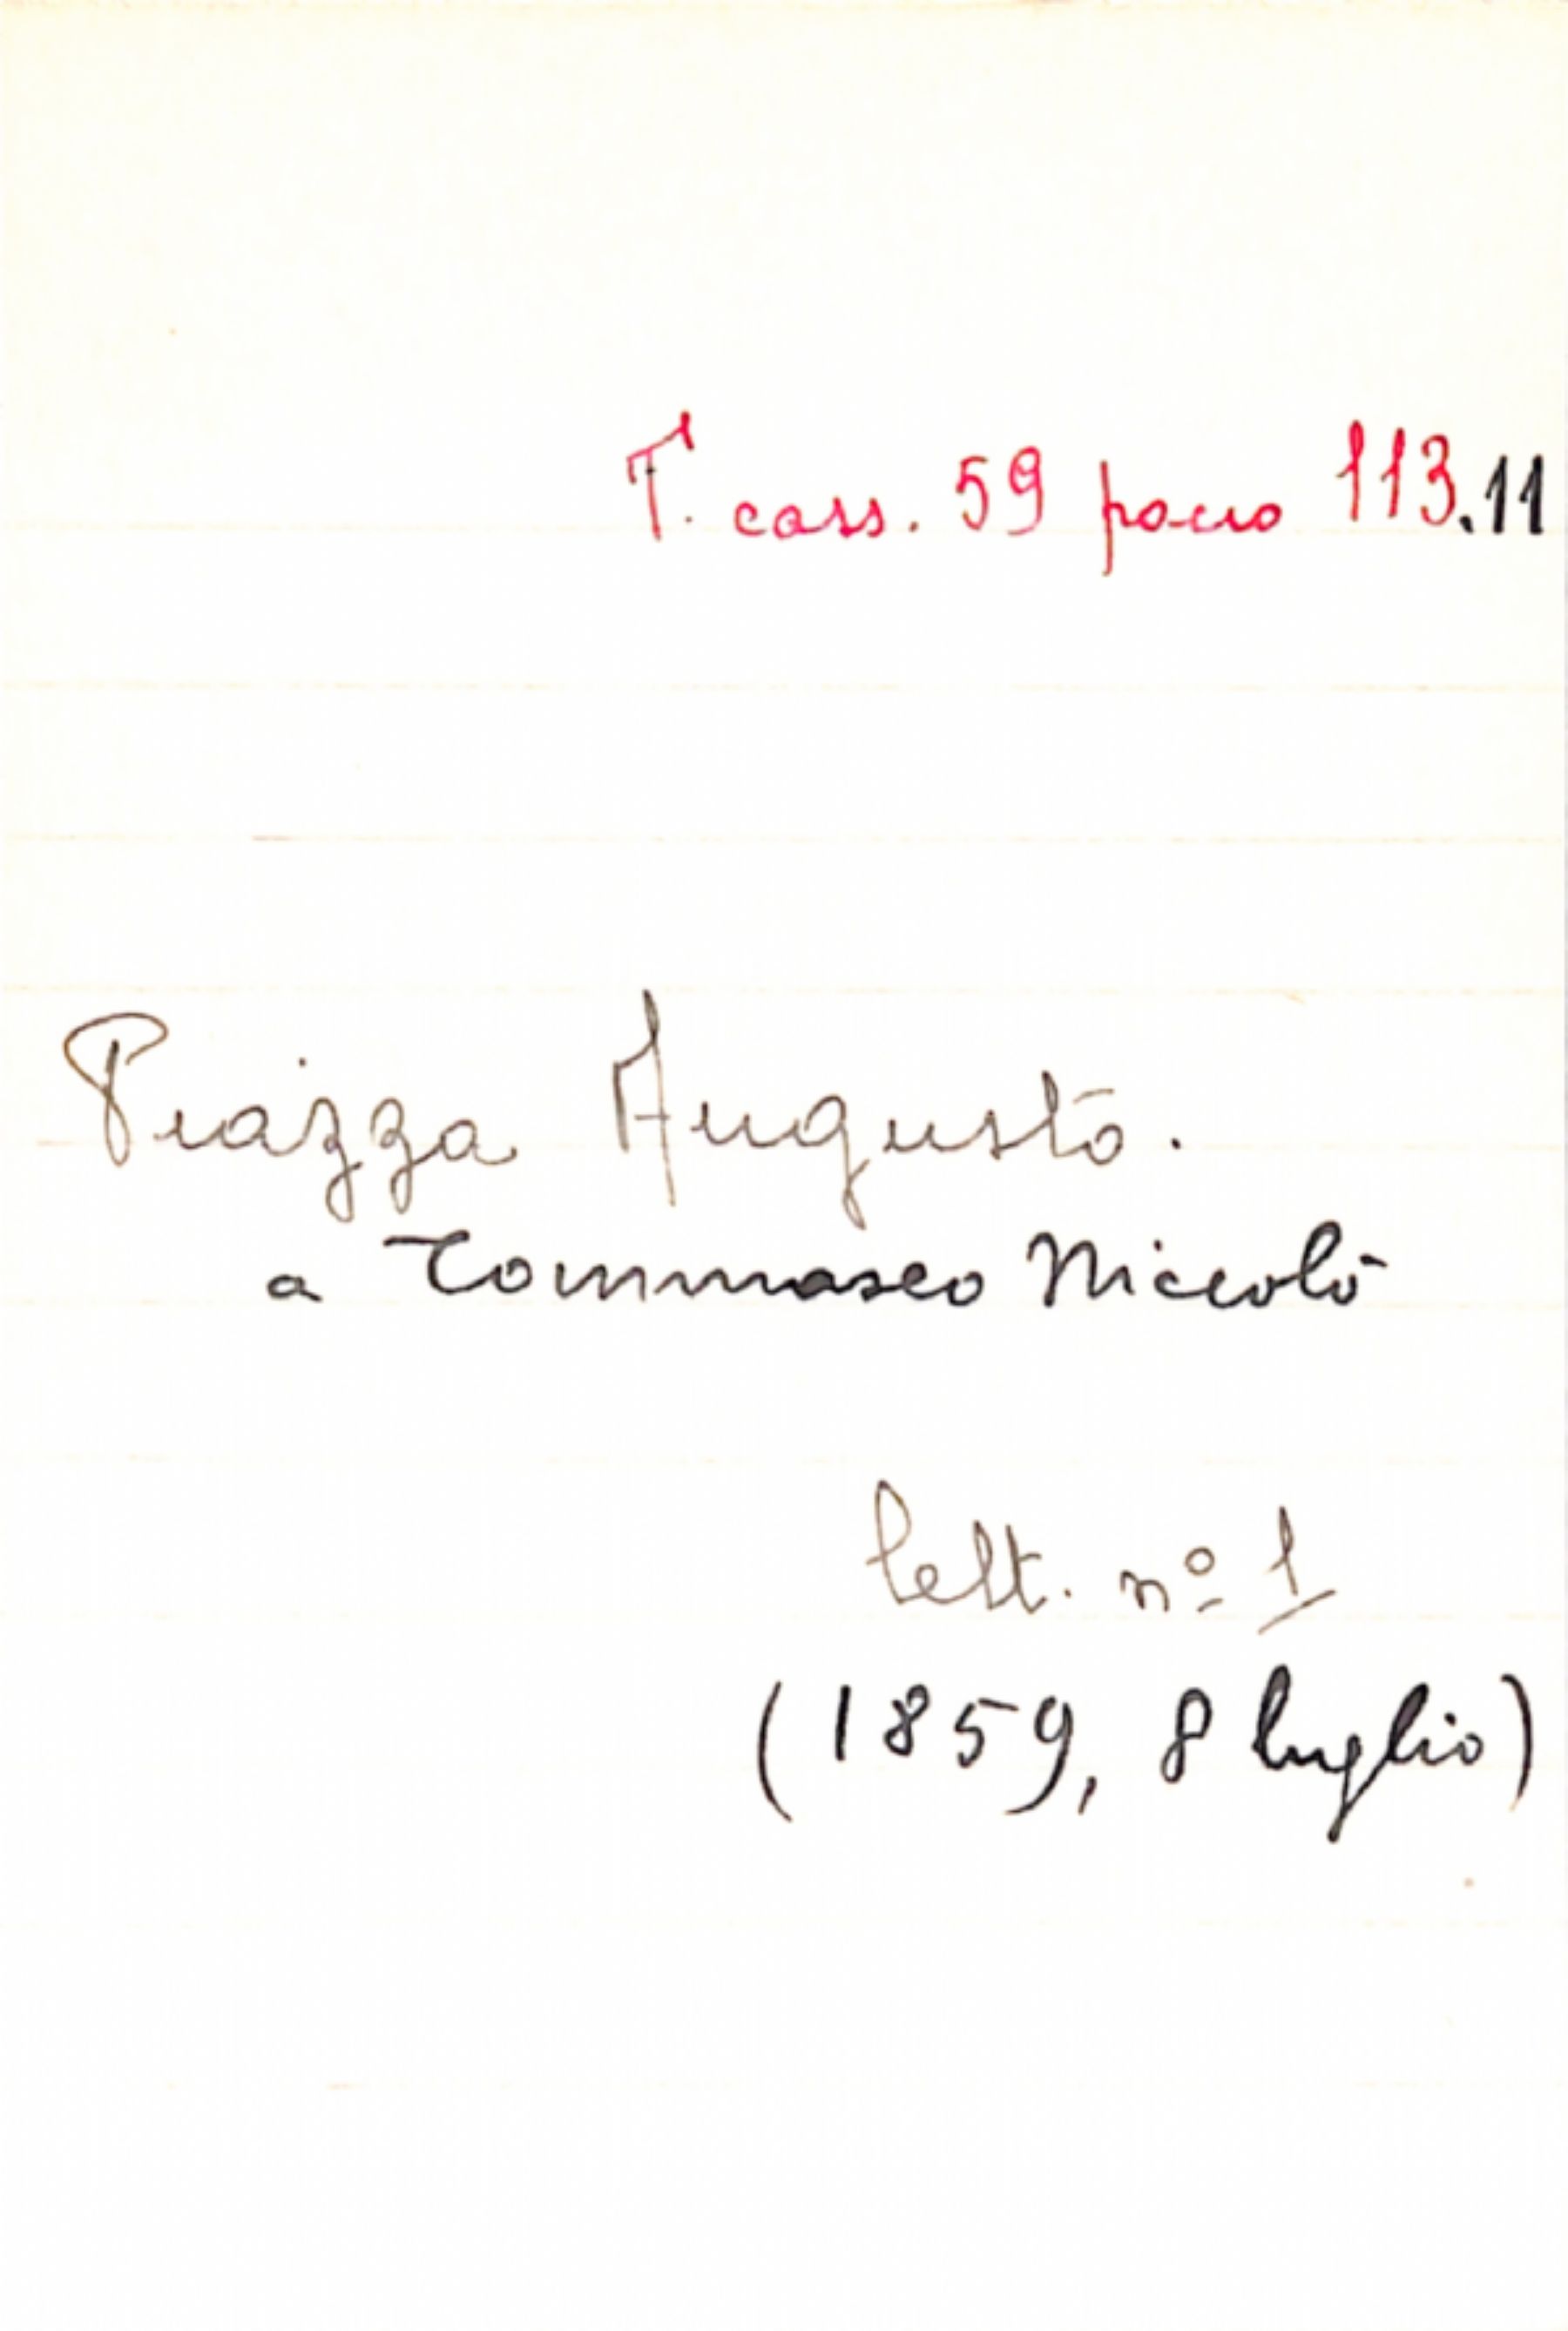 T. cass. 59 pacco 113.11
Piazza Augusto.
a Tommaseo Niccolò
lett. nº 1
(1859, 8 luglio)